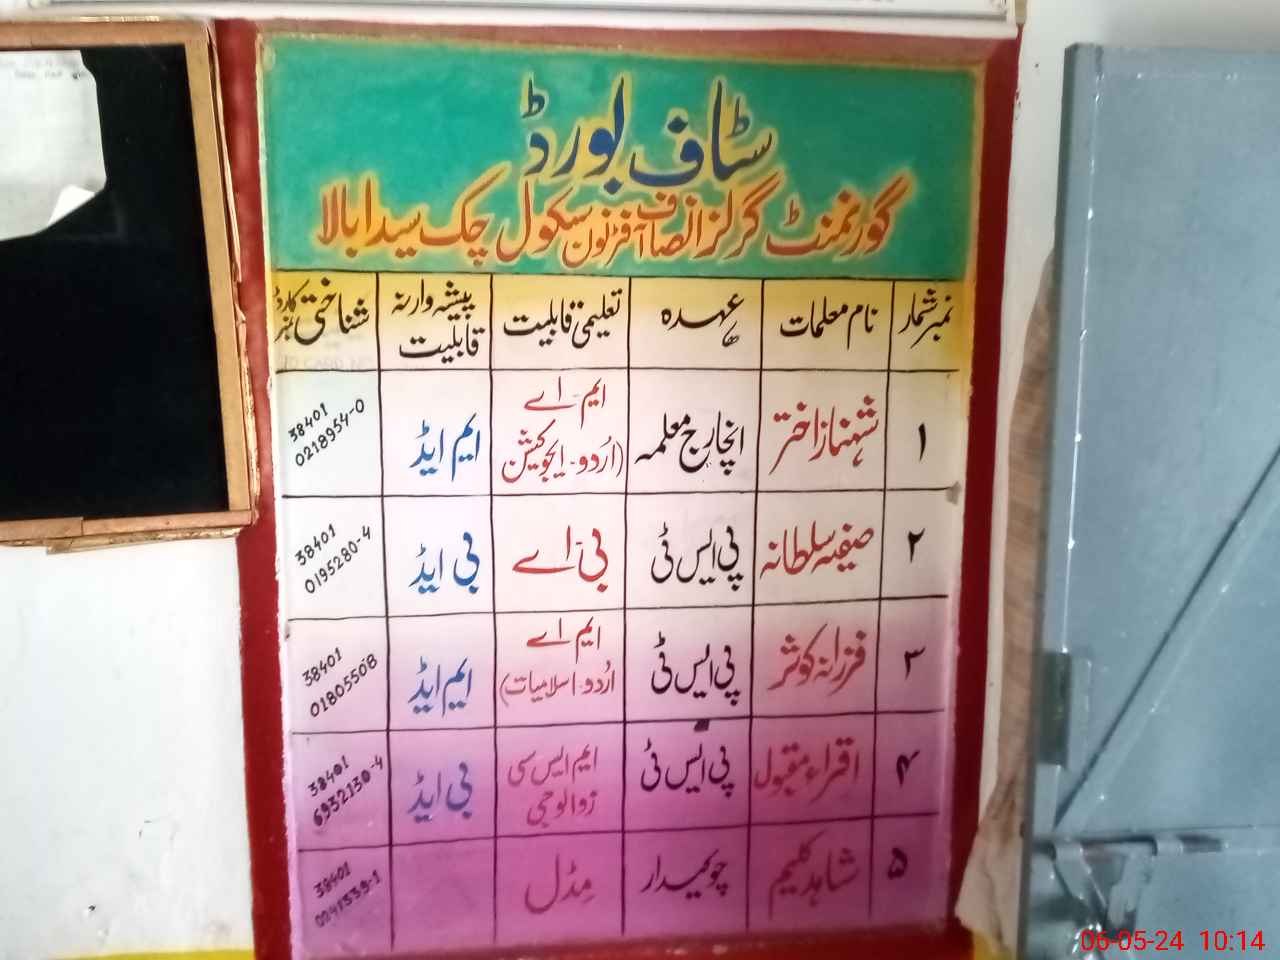 سٹاف بورڈ
گورنمنٹ گرلز انصاف آفٹرنون سکول چک سیدا بالا
نمبر شمار نام معلمات عہدہ تعلیمی قابلیت پیشہ وارنہ قابلیت شناختی کارڈ نمبر
۱ شہناز اختر انچارج معلمہ ایم-اے (اُردو-ایجوکیشن ایم ایڈ 38401 0218954-0
۲ صفیہ سلطانہ پی ایس ٹی بی-اے بی ایڈ 38401 0195280-4
۳ فرزانہ کوثر پی ایس ٹی ایم اے اُردو-اسلامیات) ایم ایڈ 38401 01805508
۴ اقراء مقبول پی ایس ٹی ایم ایس سی زوالوجی بی ایڈ 38401 6932130-4
۵ شاہد کلیم چوکیدار مِڈل 38401 0241539-1
06-05-24 10:14